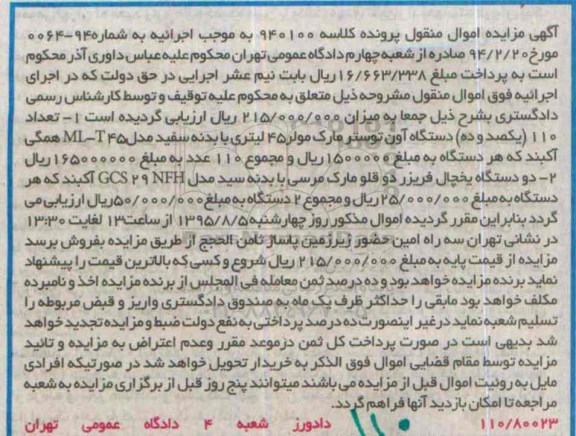 آگهی مزایده اموال منقول پرونده کلاسه ۹۴۰۱۰۰ به موجب اجرائیه به شماره۹۴-۰۰۶۴
مورخ۹۴/۲/۲۰ صادره از شعبه چهارم دادگاه عمومی تهران محکوم علیه عباس داوری آذر محکوم
است به پرداخت مبلغ ۱۶/۶۶۳/۳۳۸ ریال بابت نیم عشر اجرایی در حق دولت که در اجرای
اجرائیه فوق اموال منقول مشروحه ذیل متعلق به محکوم علیه توقیف و توسط کارشناس رسمی
دادگستری بشرح ذیل جمعا به میزان ۲۱۵/۰۰۰/۰۰۰ ریال ارزیابی گردیده است ۱- تعداد
۱۱۰ (یکصد و ده) دستگاه آون توستر مارک مولر۴۵ لیتری با بدنه سفید مدل ML-T۴۵ همگی
آکبند که هر دستگاه به مبلغ ۱۵۰۰۰۰۰ ریال و مجموع ۱۱۰ عدد به مبلغ ۱۶۵۰۰۰۰۰۰ ریال
۲- دو دستگاه یخچال فریزر دو قلو مارک مرسی با بدنه سید مدل GCS ۲۹ NFH آکبند که هر
دستگاه به مبلغ ۲۵/۰۰۰/۰۰۰ ریال و مجموع ۲ دستگاه به مبلغ ۵۰/۰۰۰/۰۰۰ ریال ارزیابی می
گردد بنابراین مقرر گردیده اموال مذکور روز چهارشنبه ۱۳۹۵/۸/۵ از ساعت۱۳ لغایت ۱۳:۳۰
در نشانی تهران سه راه امین حضور زیرزمین پاساژ ثامن الحجج از طریق مزایده بفروش برسد
مزایده از قیمت پایه به مبلغ ۲۱۵/۰۰۰/۰۰۰ ریال شروع و کسی که بالاترین قیمت را پیشنهاد
نماید برنده مزایده خواهد بود و ده درصد ثمن معامله فی المجلس از برنده مزایده اخذ و نامبرده
مکلف خواهد بود مابقی را حداکثر ظرف یک ماه به صندوق دادگستری واریز و قبض مربوطه را
تسلیم شعبه نماید در غیر اینصورت ده درصد پرداختی به نفع دولت ضبط و مزایده تجدید خواهد
شد بدیهی است در صورت پرداخت کل ثمن در موعد مقرر وعدم اعتراض به مزایده و تائید
مزایده توسط مقام قضایی اموال فوق الذکر به خریدار تحویل خواهد شد در صورتیکه افرادی
مایل به روئیت اموال قبل از مزایده می باشند میتوانند پنج روز قبل از برگزاری مزایده به شعبه
مراجعه تا امکان بازدید آنها فراهم گردد.
۱۱۰/۸۰۰۲۳ دادورز شعبه ۴ دادگاه عمومی تهران
۱۱۰